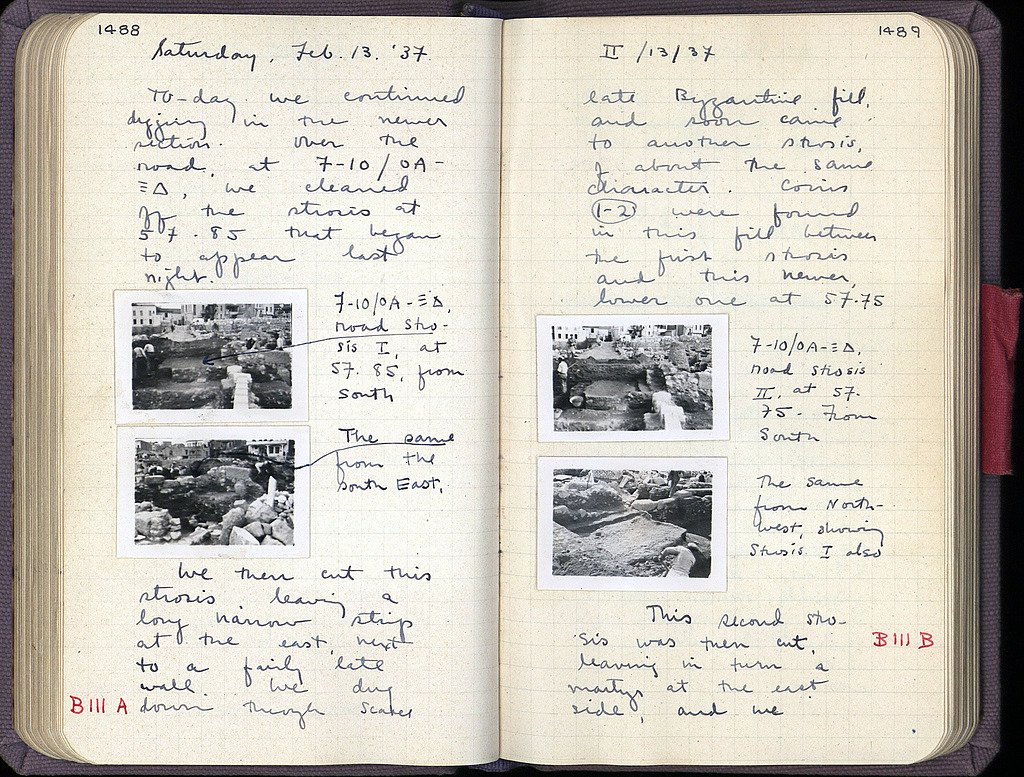 1488
Saturday, Feb. 13. '37
To-day we continued
digging in the newer
section. Over the
road, at 7-10/ΟΑ-
ΞΔ, we cleaned
off the strosis at
57.85 that began
to appear last
night.
7-10/ΟΑ-ΞΔ,
road stro-
sis I, at
57.85, from
South
The same
from the
South East.
We then cut this
strosis, leaving a
long narrow strip
at the east, next
to a fairly late
wall. We dug
B III A
down through
1489
II /13/37
late Byzantine fill,
and soon came
to another strosis,
of about the same
character. Coins
1-2 were found
in this fill between
the first strosis
and this newer,
lower one at 57.75
7-10/ΟΑ-ΞΔ,
road strosis
II, at 57.
75. From
South
The same
from North-
west, showing
Strosis I also
This second stro-
sis was then cut,
B III B
leaving in turn a
martys at the east
side, and we